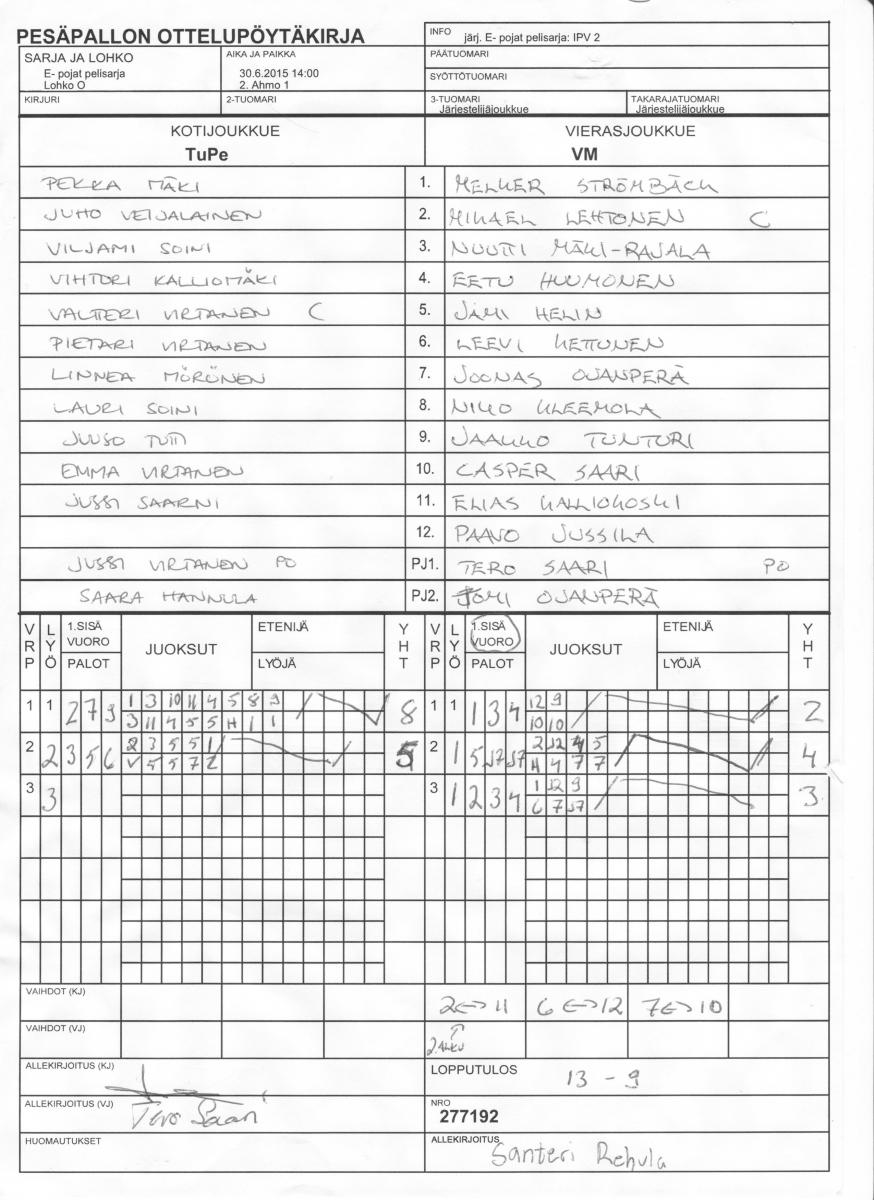 PESÄPALLON OTTELUPÖYTÄKIRJA
INFO järj. E- pojat pelisarja: IPV 2
SARJA JA LOHKO
E- pojat pelisarja
Lohko O
AIKA JA PAIKKA
30.6.2015 14:00
2. Ahmo 1
PÄÄTUOMARI
SYÖTTÖTUOMARI
KIRJURI
2-TUOMARI
3-TUOMARI
Järjestelijäjoukkue
TAKARAJATUOMARI
Järjestelijäjoukkue
KOTIJOUKKUE
TuPe
VIERASJOUKKUE
VM
PEKKA MÄKI 1. MELKER STRÖMBÄCK
JUHO VEIJALAINEN 2. MIKAEL LEHTONEN C
VILJAMI SOINI 3. NUUTTI MÄKI-RAJALA
VIHTORI KALLIOMÄKI 4. EETU HUUMONEN
VALTTERI VIRTANEN C 5. JAMI HELIN
PIETARI VIRTANEN 6. LEEVI KETTUNEN
LINNEA MÖRÖNEN 7. JOONAS OJANPERÄ
LAURI SOINI 8. NIKO KLEEMOLA
JUUSO TUTTI 9. JAAKKO TUNTURI
EMMA VIRTANEN 10. CASPER SAARI
JUSSI SAARNI 11. ELIAS KALLIOKOSKI
12. PAAVO JUSSILA
JUSSI VIRTANEN PO PJ1. TERO SAARI PO
SAARA HANNULA PJ2. TOMI OJANPERÄ
VRP LYÖ 1.SISÄ VUORO PALOT JUOKSUT ETENIJÄ LYÖJÄ YHT VRP LYÖ 1.SISÄ VUORO PALOT JUOKSUT ETENIJÄ LYÖJÄ YHT
1 1 2 7 9 1 3 10 11 4 5 8 9 8 1 1 1 3 4 12 9 2
3 11 4 5 5 H 1 1 10 10
2 2 3 5 6 2 3 5 5 1 5 2 1 5 J7 J7 2 J2 4 5 4
V 5 5 7 2 H 4 7 7
3 3 3 1 2 3 4 1 J2 9 3
6 7 J7
VAIHDOT (KJ) 2<->11 6<->12 7<->10
VAIHDOT (VJ) 2.ALKU
ALLEKIRJOITUS (KJ)
LOPPUTULOS 13 - 9
ALLEKIRJOITUS (VJ) Tero Saari
NRO
277192
HUOMAUTUKSET
ALLEKIRJOITUS Santeri Rehula